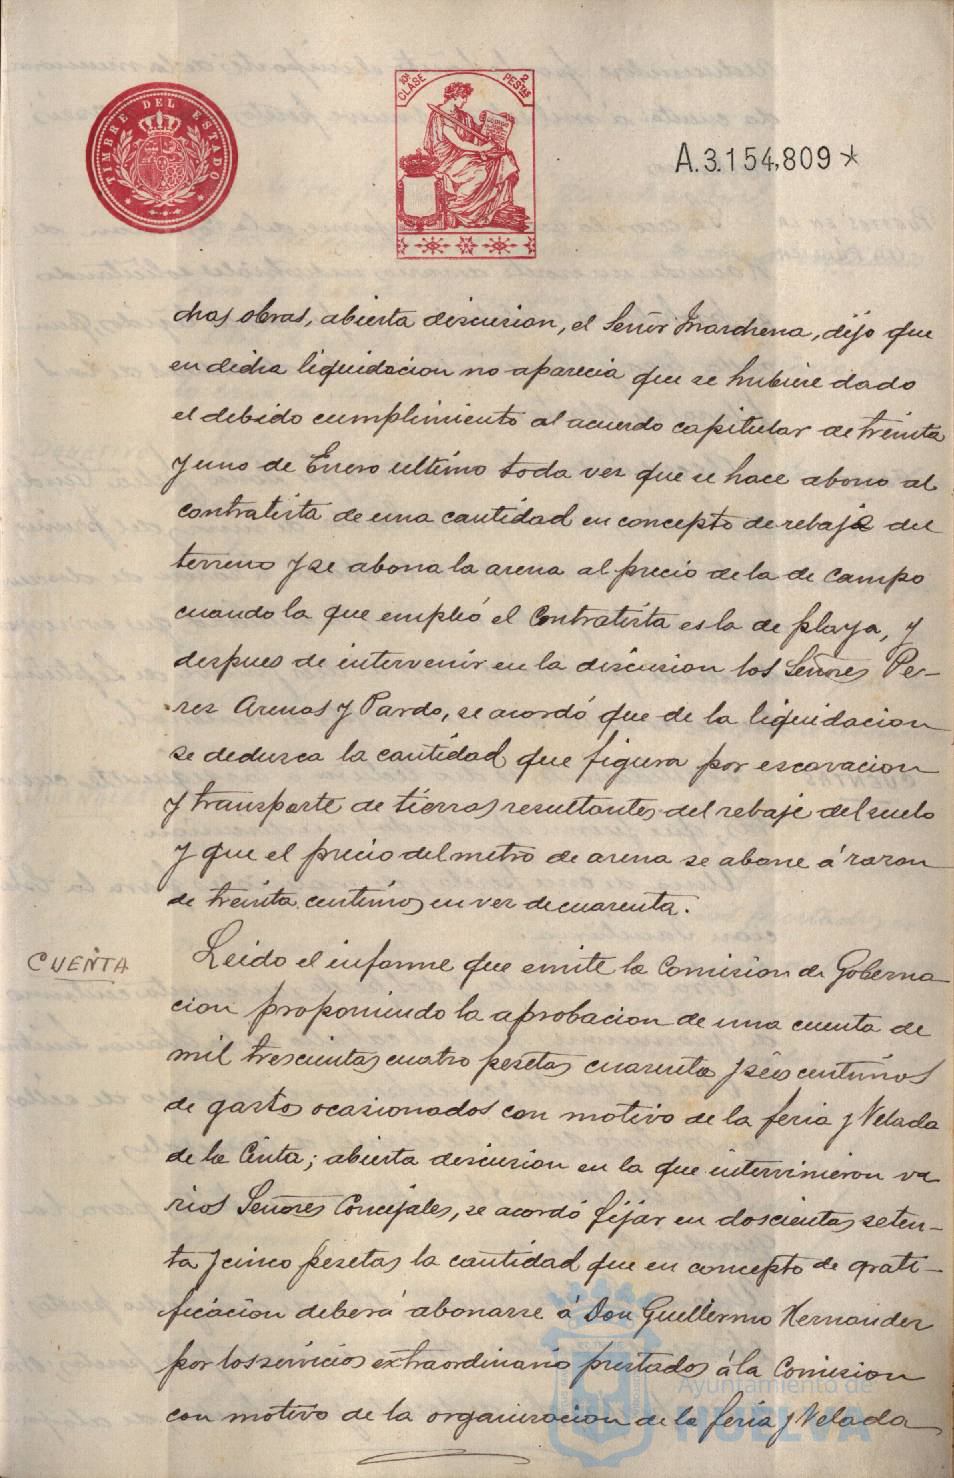 TIMBRE DEL ESTADO
10ª CLASE 2 PESTAS
A.3.154,809 *
chas obras, abierta discusion, el Señor Marchena, dijo que
en dicha liquidacion no aparecia que se hubiere dado
el debido cumplimiento al acuerdo capitular de treinta
y uno de Enero ultimo toda vez que se hace abono al
contratista de una cantidad en concepto de rebaje del
terreno y se abona la arena al precio de la de campo
cuando la que empleó el Contratista es la de playa, y
despues de intervenir en la discusion los Señores Pe-
rez Arenas y Pardo, se acordó que de la liquidacion
se deduzca la cantidad que figura por escavacion
y transporte de tierras resultantes del rebaje del suelo
y que el precio del metro de arena se abone á razon
de treinta centimos en vez de cuarenta.
CUENTA
Leido el informe que emite la Comision de Goberna-
cion proponiendo la aprobacion de una cuenta de
mil trescientas cuatro pesetas cuarenta y seis centimos
de gastos ocasionados con motivo de la feria y Velada
de la Cinta; abierta discusion en la que intervinieron va
rios Señores Concejales, se acordó fijar en doscientas seten-
ta y cinco pesetas la cantidad que en concepto de grati-
ficacion deberá abonarse á Don Guillermo Hernandez
por los servicios extraordinarios prestados á la Comision
con motivo de la organizacion de la feria y Velada
Ayuntamiento de
HUELVA